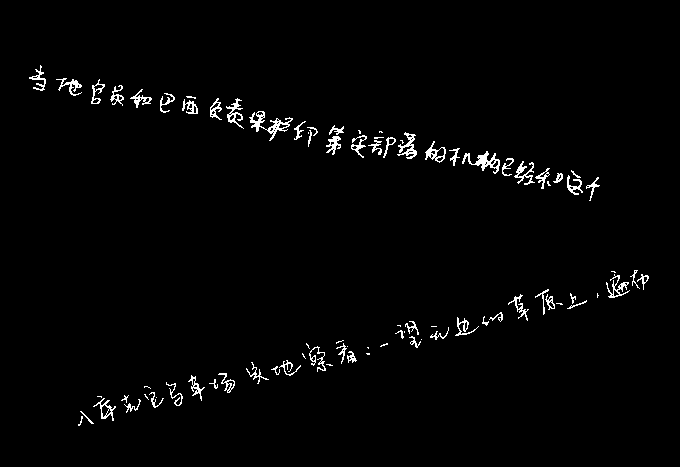 当地官员和巴西负责保护印第安部落的机构已经和这个
入库尔它乌草场实地察看:一望无边的草原上,遍布